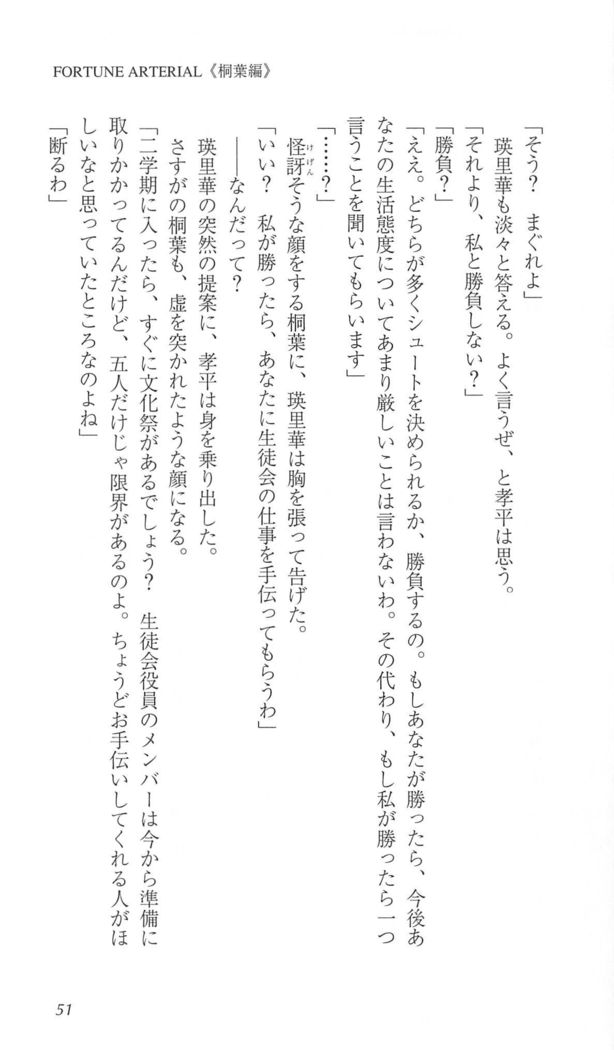 FORTUNE ARTERIAL《桐葉編》
「そう？　まぐれよ」
瑛里華も淡々と答える。よく言うぜ、と孝平は思う。
「それより、私と勝負しない？」
「勝負？」
「ええ。どちらが多くシュートを決められるか、勝負するの。もしあなたが勝ったら、今後あ
なたの生活態度についてあまり厳しいことは言わないわ。その代わり、もし私が勝ったら一つ
言うことを聞いてもらいます」
「……？」
怪訝そうな顔をする桐葉に、瑛里華は胸を張って告げた。
けげん
「いい？　私が勝ったら、あなたに生徒会の仕事を手伝ってもらうわ」
――なんだって？
瑛里華の突然の提案に、孝平は身を乗り出した。
さすがの桐葉も、虚を突かれたような顔になる。
「二学期に入ったら、すぐに文化祭があるでしょう？　生徒会役員のメンバーは今から準備に
取りかかってるんだけど、五人だけじゃ限界があるのよ。ちょうどお手伝いしてくれる人がほ
しいなと思っていたところなのよね」
「断るわ」
51